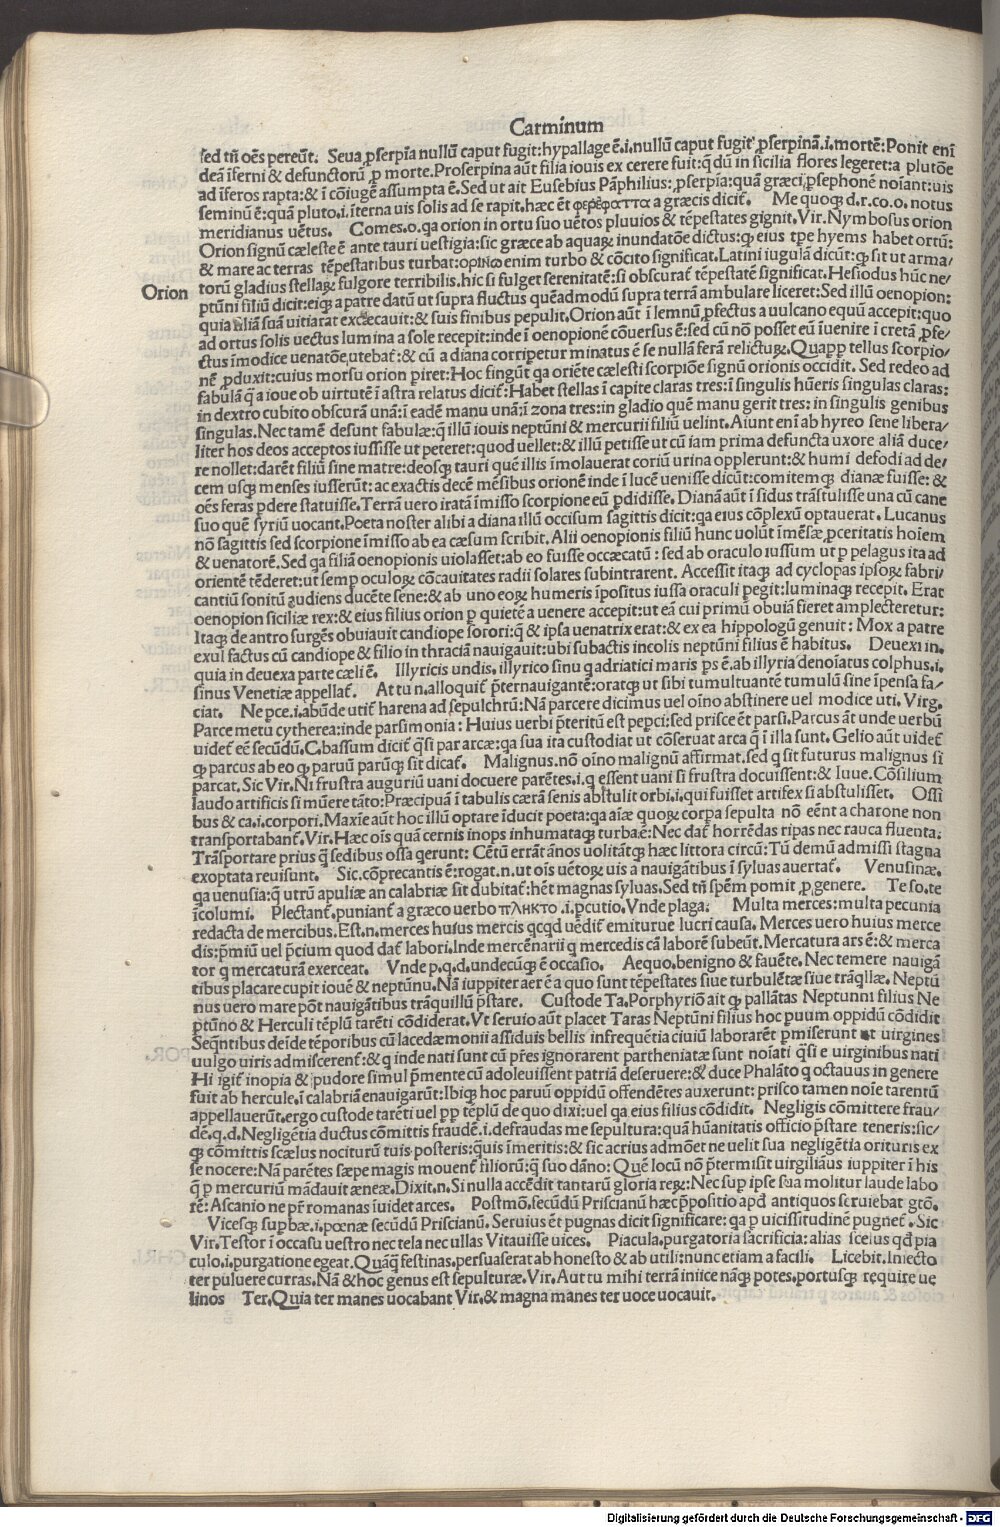 Carminum
sed tñ oẽs pereũt. Seua ꝓserpĩa nullũ caput fugit:hypallage ẽ.i.nullũ caput fugit ꝓserpinã.i.mortẽ:Ponit eni
deã ĩferni & defunctorũ ꝑ morte.Proserpina aũt filia iouis ex cerere fuit:q̃ dũ in sicilia flores legeret:a plutõe
ad ĩferos rapta:& ĩ cõiugẽ assumpta ẽ.Sed ut ait Eusebius Pãphilius:ꝓserpĩa:quã græci ꝓsephonẽ noĩant:uis
seminũ ẽ:quã pluto.i.ĩterna uis solis ad se rapit.hæc ẽt φερέφαττα a græcis dicit̃. Me quoqꝫ d.r.co.o. notus
meridianus uẽtus. Comes.o.qa orion in ortu suo uẽtos pluuios & tẽpestates gignit.Vir.Nymbosus orion
Orion signũ cæleste ẽ ante tauri uestigia:sic græce ab aquaꝝ inundatõe dictus:ꝙ eius tpe hyems habet ortũ:
& mare ac terras tẽpestatibus turbat:ορινω enim turbo & cõcito significat.Latini iugulã dicũt:ꝙ sit ut arma/
Orion
torũ gladius stellaꝝ fulgore terribilis.hic si fulget serenitatẽ:si obscurat̃ tẽpestatẽ significat.Hesiodus hũc ne/
ptũni filiũ dicit:eiqꝫ a patre datũ ut supra fluctus quẽadmodũ supra terrã ambulare liceret:Sed illũ oenopion:
quia filiã suã uitiarat excæcauit:& suis finibus pepulit.Orion aũt ĩ lemnũ ꝓfectus a uulcano equũ accepit:quo
ad ortus solis uectus lumina a sole recepit:inde ĩ oenopionẽ cõuersus ẽ:sed cũ nõ posset eũ ĩuenire ĩ cretã ꝓfe/
ctus ĩmodice uenatõe utebat̃:& cũ a diana corriperetur minatus ẽ se nullã ferã relictuꝝ.Quapp tellus scorpio/
nẽ ꝓduxit:cuius morsu orion piret:Hoc fingũt qa oriẽte cælesti scorpiõe signũ orionis occidit. Sed redeo ad
fabulã q̃ a ioue ob uirtutẽ ĩ astra relatus dicit̃:Habet stellas ĩ capite claras tres:ĩ singulis hũeris singulas claras:
in dextro cubito obscurã unã:ĩ eadẽ manu unã:ĩ zona tres:in gladio quẽ manu gerit tres: in singulis genibus
singulas.Nec tamẽ desunt fabulæ:q̃ illũ iouis neptũni & mercurii filiũ uelint.Aiunt enĩ ab hyreo sene libera/
liter hos deos acceptos iussisse ut peteret:quod uellet:& illũ petisse ut cũ iam prima defuncta uxore aliã duce/
re nollet:darẽt filiũ sine matre:deosqꝫ tauri quẽ illis ĩmolauerat coriũ urina opplerunt:& humi defodi ad de/
cem usqꝫ menses iusserũt: ac exactis decẽ mẽsibus orionẽ inde ĩ lucẽ uenisse dicũt:comitemqꝫ dianæ fuisse: &
oẽs feras ꝑdere statuisse.Terrã uero iratã ĩmisso scorpione eũ ꝑdidisse. Dianã aũt ĩ sidus trãstulisse una cũ cane
suo quẽ syriũ uocant.Poeta noster alibi a diana illũ occisum sagittis dicit:qa eius cõplexũ optauerat. Lucanus
nõ sagittis sed scorpione ĩmisso ab ea cæsum scribit. Alii oenopionis filiũ hunc uolũt ĩmẽsæ ꝓceritatis hoĩem
& uenatorẽ.Sed qa filiã oenopionis uiolasset:ab eo fuisse occæcatũ : sed ab oraculo iussum ut ꝑ pelagus ita ad
orientẽ tẽderet:ut semp oculoꝝ cõcauitates radii solares subintrarent. Accessit itaqꝫ ad cyclopas ipsoꝝ fabri/
cantiũ sonitũ audiens ducẽte sene:& ab uno eoꝝ humeris ĩpositus iussa oraculi pegit:luminaqꝫ recepit. Erat
oenopion siciliæ rex:& eius filius orion ꝑ quietẽ a uenere accepit:ut eã cui primũ obuiã fieret amplecteretur:
Itaqꝫ de antro surgẽs obuiauit candiope sorori:q̃ & ipsa uenatrix erat:& ex ea hippologũ genuit : Mox a patre
exul factus cũ candiope & filio in thraciã nauigauit:ubi subactis incolis neptũni filius ẽ habitus. Deuexi in.
quia in deuexa parte cæli ẽ. Illyricis undis.illyrico sinu q adriatici maris ps ẽ.ab illyria denoĩatus colphus.i.
sinus Venetiæ appellat̃. At tu n.alloquit̃ p̃ternauigantẽ:oratqꝫ ut sibi tumultuantẽ tumulũ sine ĩpensa fa/
ciat. Ne pce.i.abũde utit̃ harena ad sepulchrũ:Nã parcere dicimus uel oĩno abstinere uel modice uti. Virg.
Parce metu cytherea:inde parsimonia : Huius uerbi p̃teritũ est peꝑci:sed prisce ẽt parsi.Parcus ãt unde uerbũ
uidet̃ eẽ secũdũ.C.bassum dicit̃ q̃si par arcæ:qa sua ita custodiat ut cõseruat arca q̃ ĩ illa sunt. Gelio aũt uidet̃
ꝙ parcus ab eo ꝙ paruũ parũqꝫ sit dicat̃. Malignus.nõ oĩno malignũ affirmat.sed q sit futurus malignus si
parcat.Sic Vir.Ni frustra auguriũ uani docuere parẽtes.i.q essent uani si frustra docuissent:& Iuue.Cõsilium
laudo artificis si mũere tãto:Præcipuã ĩ tabulis cærã senis abstulit orbi.i.qui fuisset artifex si abstulisset. Ossi
bus & ca.i.corpori.Maxĩe aũt hoc illũ optare ĩducit poeta:qa aĩæ quoꝝ corpa sepulta nõ eẽnt a charone non
transportabant̃.Vir.Hæc oĩs quã cernis inops inhumataqꝫ turba ẽ:Nec dat̃ horrẽdas ripas nec rauca fluenta:
Trãsportare prius q̃ sedibus ossa qerunt: Cẽtũ errãt ãnos uolitãtqꝫ hæc littora circũ:Tũ demũ admissi stagna
exoptata reuisunt. Sic.cõprecantis ẽ:rogat.n.ut oĩs uẽtoꝝ uis a nauigãtibus ĩ syluas auertat̃. Venusinæ.
qa uenusia:q̃ utrũ apuliæ an calabriæ sit dubitat̃:hẽt magnas syluas.Sed tñ spẽm pomit ꝓ genere. Te so.te
ĩcolumi. Plectant̃.puniant̃ a græco uerbo πληκτο.i.ꝑcutio.Vnde plaga: Multa merces:multa pecunia
redacta de mercibus.Est.n.merces huius mercis qcqd uẽdit̃ emiturue lucri causa. Merces uero huius merce
dis:p̃miũ uel p̃cium quod dat̃ labori.Inde mercẽnarii q mercedis cã laborẽ subeũt.Mercatura ars ẽ:& merca
tor q mercaturã exerceat. Vnde p.q.d.undecũqꝫ ẽ occasio. Aequo.benigno & fauẽte. Nec temere nauigã
tibus placare cupit iouẽ & neptũnu.Nã iuppiter aer ẽ a quo sunt tẽpestates siue turbulẽtæ siue trãqllæ. Neptũ
nus uero mare põt nauigãtibus trãquillũ p̃stare. Custode Ta.Porphyriõ ait ꝙ pallãtas Neptunni filius Ne
ptũno & Herculi tẽplũ tarẽti cõdiderat.Vt seruio aũt placet Taras Neptũni filius hoc puum oppidũ cõdidit
Seqñtibus deĩde tẽporibus cũ lacedæmonii assiduis bellis infrequẽtia ciuiũ laborarẽt pmiserunt ut uirgines
uulgo uiris admiscerent̃:& q inde nati sunt cũ pr̃es ignorarent partheniatæ sunt noĩati q̃si e uirginibus nati
Hi igit̃ inopia & pudore simul p̃mente cũ adoleuissent patriã deseruere:& duce Phalãto q octauus in genere
fuit ab hercule.ĩ calabriã enauigarũt:Ibiqꝫ hoc paruũ oppidũ offendẽtes auxerunt: prisco tamen noĩe tarentũ
appellauerũt.ergo custode tarẽti uel ꝓp tẽplũ de quo dixi:uel qa eius filius cõdidit. Negligis cõmittere frau/
dẽ.q.d.Negligẽtia ductus cõmittis fraudẽ.i.defraudas me sepultura:quã hũanitatis officio p̃stare teneris:sic/
qꝫ cõmittis scælus nociturũ tuis posteris:q̃uis ĩmeritis:& sic acrius admõet ne uelit sua negligẽtia orituris ex
se nocere:Nã parẽtes sæpe magis mouent̃ filiorũ:q̃ suo dãno: Quẽ locũ nõ p̃termisit uirgiliãus iuppiter ĩ his
q̃ ꝑ mercuriũ mãdauit æneæ. Dixit.n.Si nulla accẽdit tantarũ gloria reꝝ:Nec sup ipse sua molitur laude labo
rẽ:Ascanio ne pr̃ romanas ĩuidet arces. Postmõ.secũdũ Priscianũ hæc p̃positio apd̃ antiquos seruiebat gtõ.
Vicesqꝫ supbæ.i.pœnæ secũdũ Priscianũ. Seruius ẽt pugnas dicit significare: qa ꝑ uicissitudinẽ pugnet̃. Sic
Vir.Testor ĩ occasu uestro nec tela nec ullas Vitauisse uices. Piacula.purgatoria sacrificia: alias scelus qd̃ pia
culo.i.purgatione egeat.Quãq̃ festinas.persuaserat ab honesto & ab utili:nunc etiam a facili. Licebit.Iniecto
ter puluere curras. Nã & hoc genus est sepulturæ.Vir.Aut tu mihi terrã iniice nãqꝫ potes.portusqꝫ require ue
linos Ter.Quia ter manes uocabant Vir.& magna manes ter uoce uocauit.
Digitalisierung gefördert durch die Deutsche Forschungsgemeinschaft - DFG